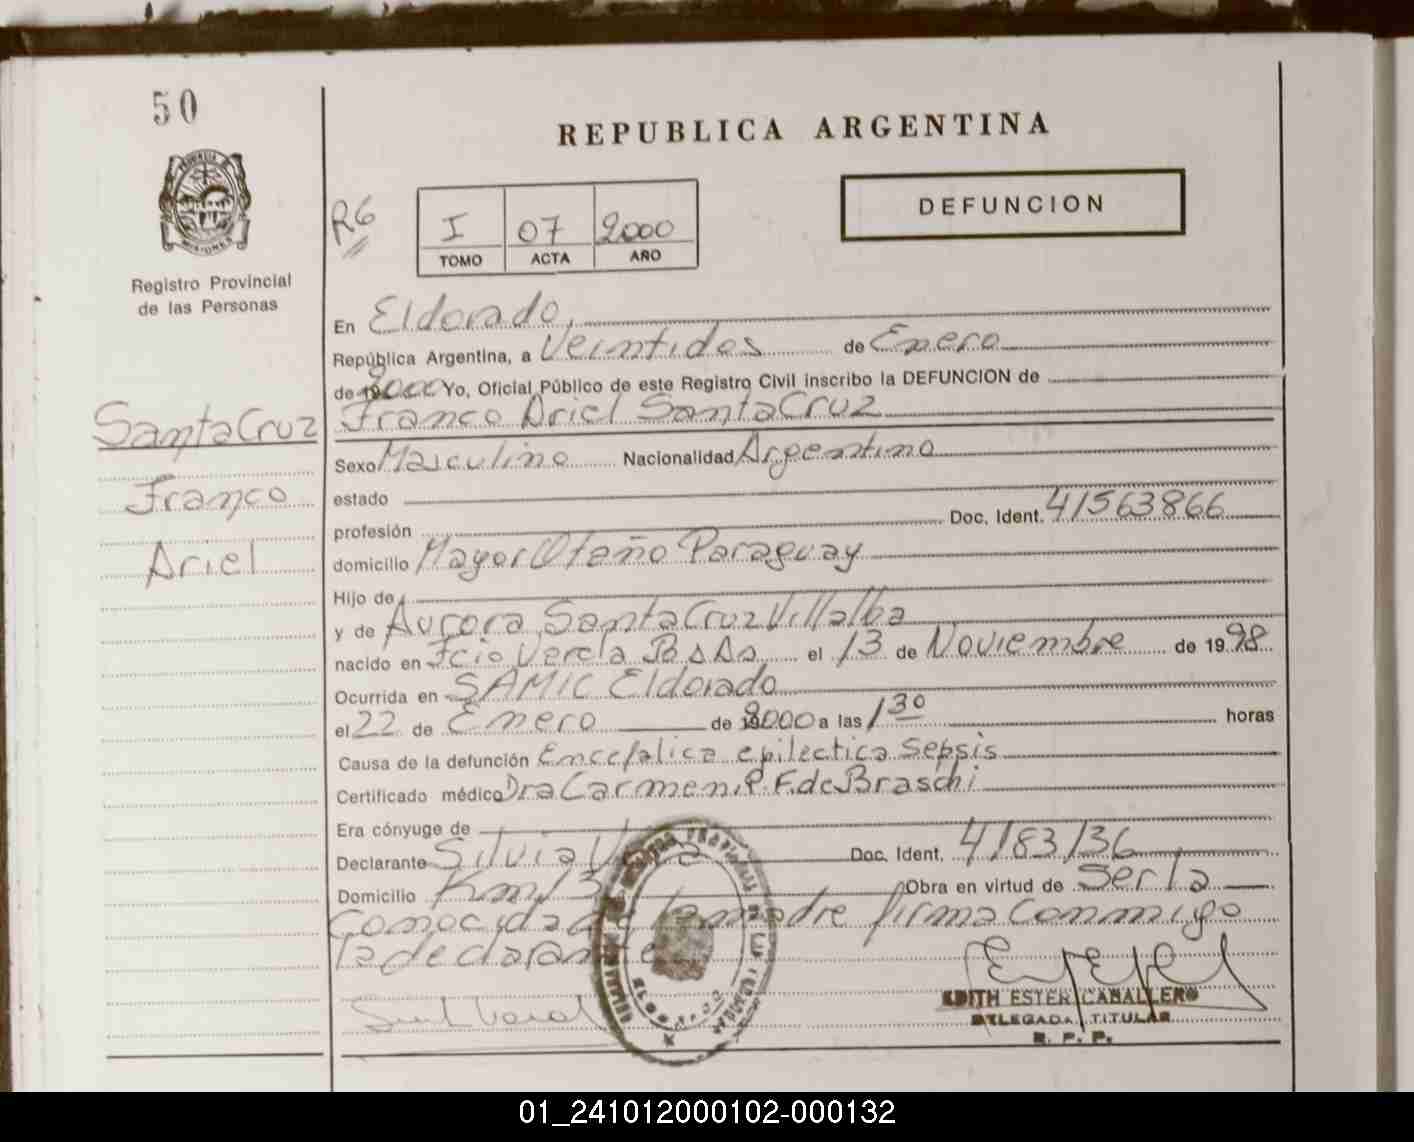 50
REPUBLICA ARGENTINA
PROVINCIA DE MISIONES
Registro Provincial
de las Personas
R6
I 07 2000
TOMO ACTA AÑO
DEFUNCION
En Eldorado,
República Argentina, a Veintidos de Enero
de 2000 Yo, Oficial Público de este Registro Civil inscribo la DEFUNCION de
Franco Ariel SantaCruz
SantaCruz
Franco
Ariel
Sexo Masculino Nacionalidad Argentino
estado
profesión Doc. Ident. 41563866
domicilio Mayor Otaño Paraguay
Hijo de
y de Aurora SantaCruz Villalba
nacido en Fcio Varela Bs As el 13 de Noviembre de 1998
Ocurrida en SAMIC Eldorado
el 22 de Enero de 2000 a las 1 30 horas
Causa de la defunción Encefalica epilectica Sepsis
Certificado médico Dra Carmen. P. F. de Braschi
Era cónyuge de
Declarante Silvia Doc. Ident. 4183136
Domicilio Km 13 Obra en virtud de Ser la
conocida de la madre firma Conmigo
la declarante
EDITH ESTER CABALLERO
DELEGADA TITULAR
R. P. P.
01_241012000102-000132